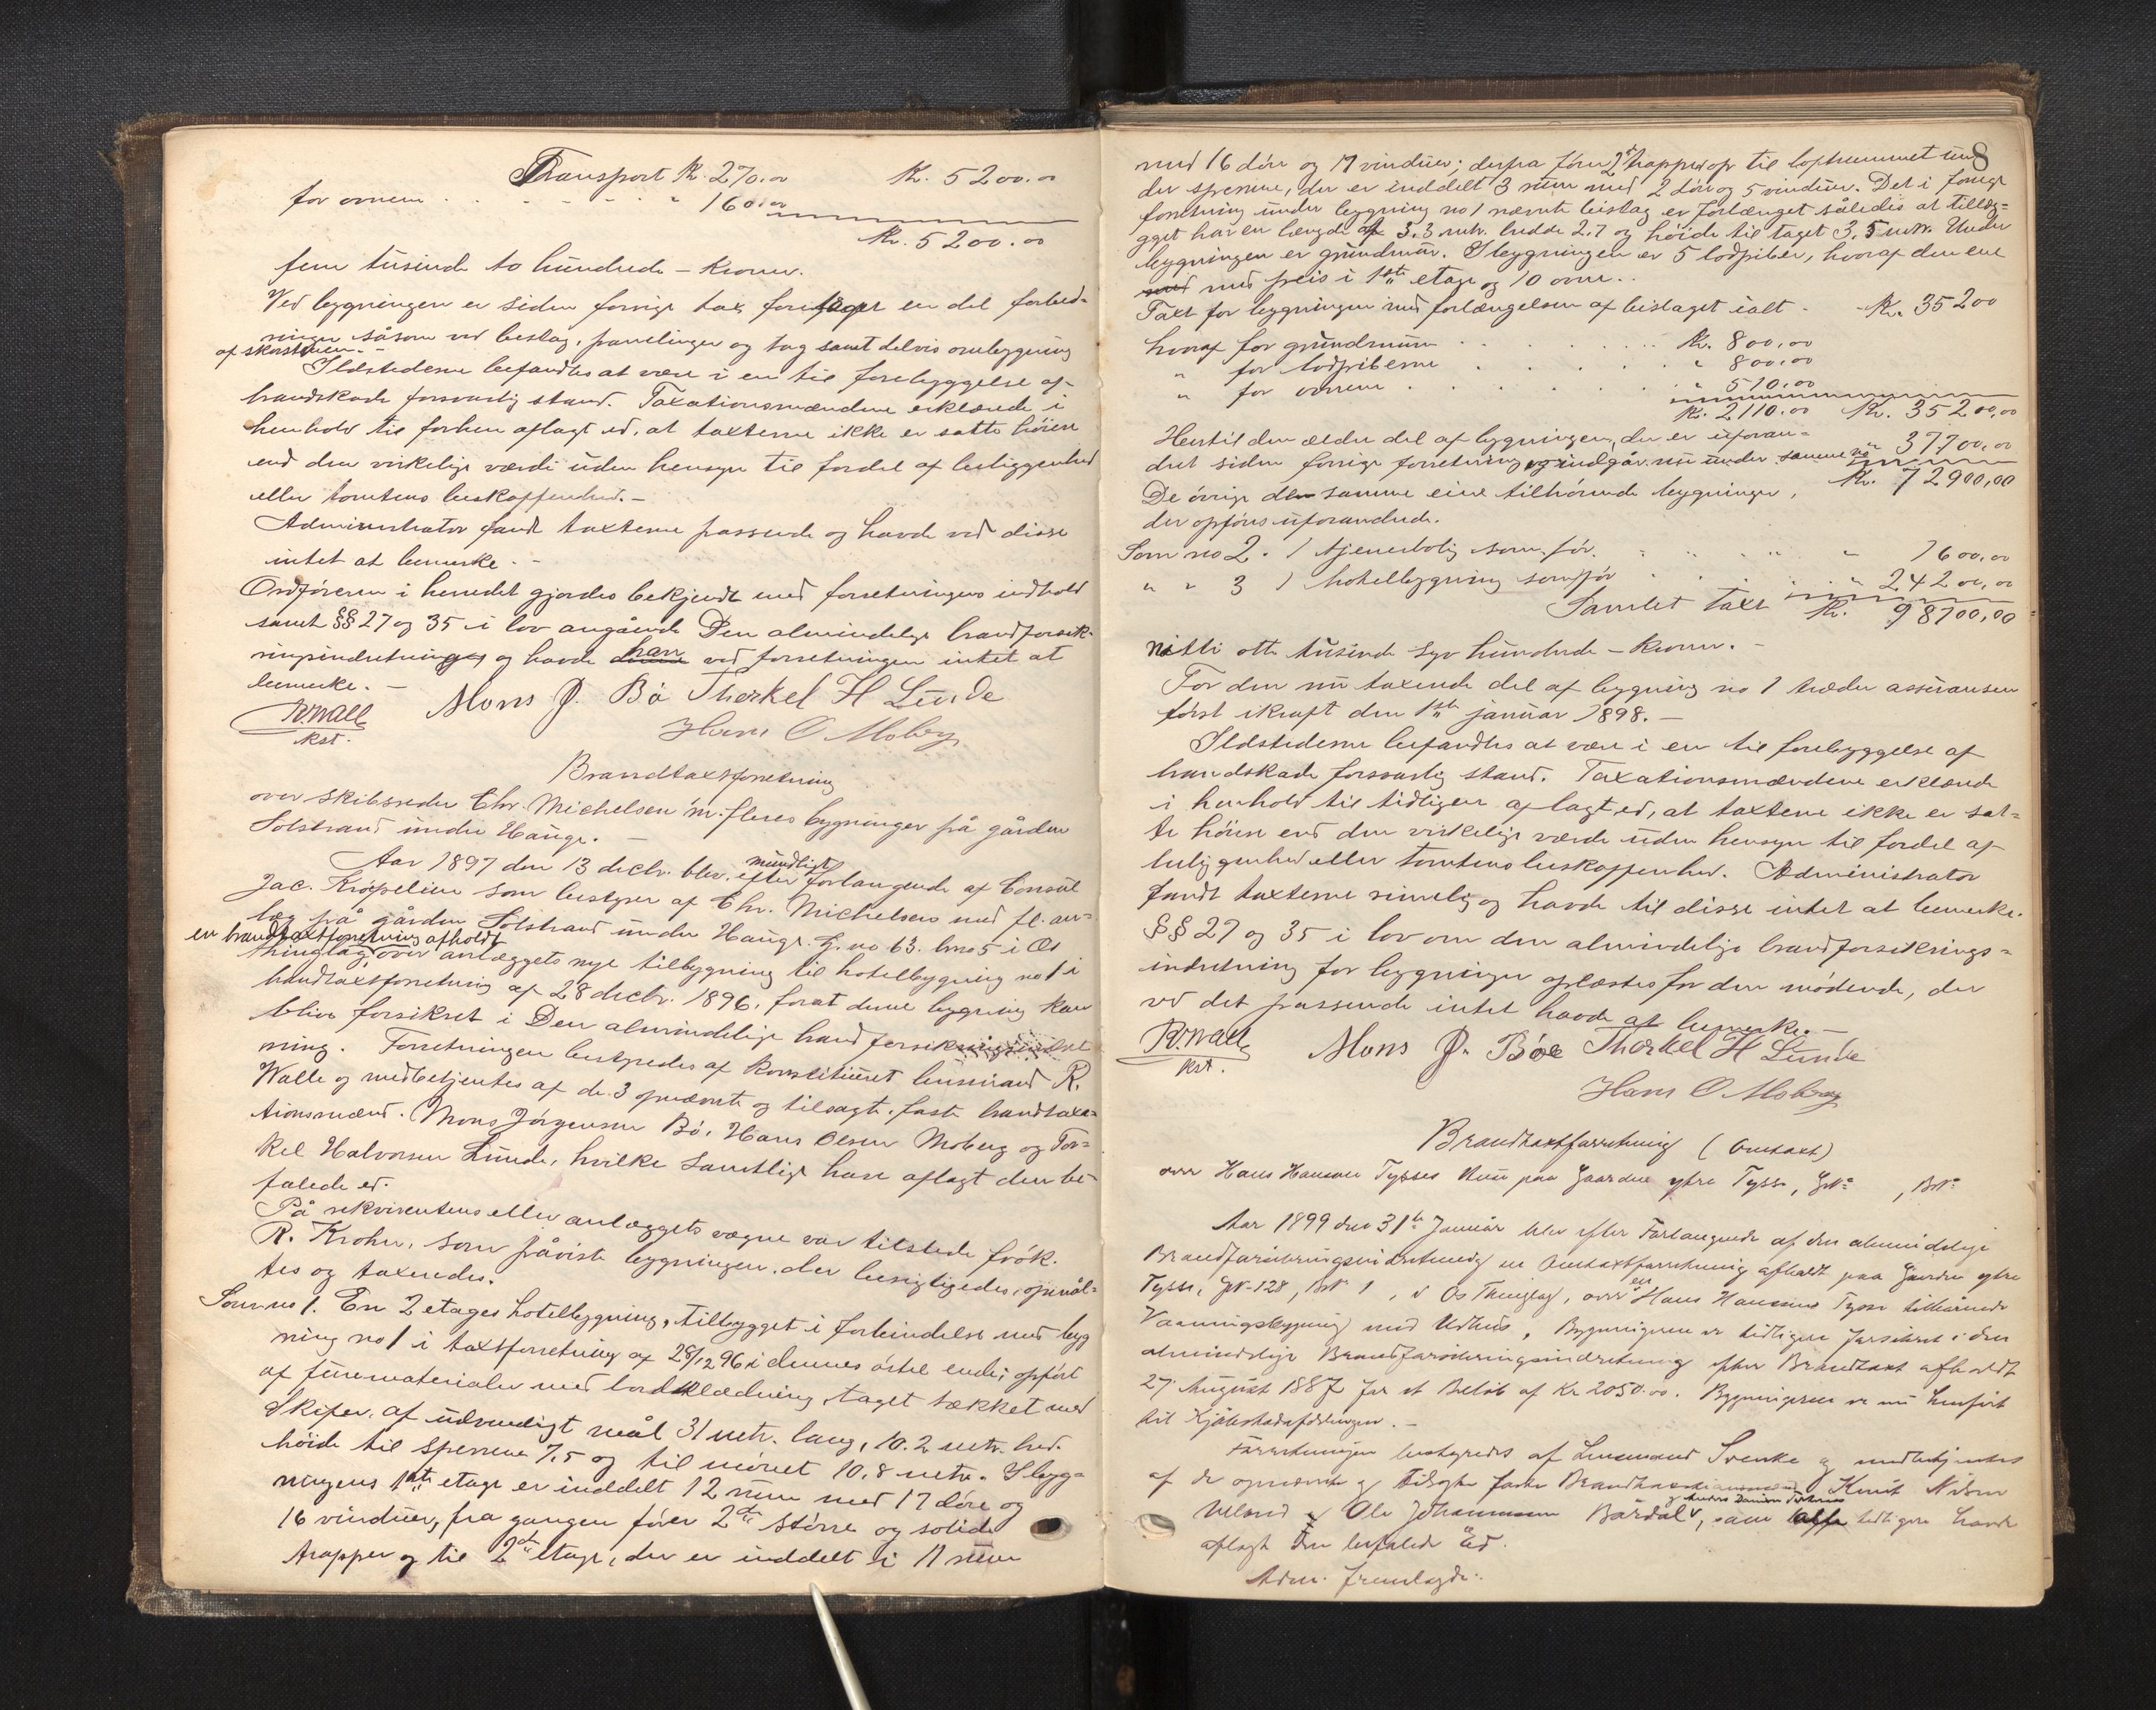 Transport Kr. 270.00 Kr. 5200.00
for ovnene . . - - - . " 160.00
Kr. 5200.00
fem tusinde to hundrede – kroner.
Ved bygningen er siden forrige tax foretaget en del forbed-
ringer såsom ved beslag, panelinger og tag samt delvis ombygning
af skorstenen. -
Ildstederne befandtes at være i en til forebyggelse af
brandskade forsvarlig stand. Taxationsmændene erklærede i
henhold til forhen aflagt ed, at taxterne ikke er satte høiere
end den virkelige værdi uden hensyn til fordel af beliggenhed
eller tomtens beskaffenhed. –
Administrator fandt taxterne passende og havde ved disse
intet at bemerke. -
Ordføreren i herredet gjordes bekjendt med forretningens indhold
samt §§ 27 og 35 i lov angående Den almindelige brandforsik-
ringsindretning og havde han ved forretningen intet at
bemerke. –
RWalle Mons J. Bø Therkel H Lunde
kst. Hans O Moberg
Brandtaxtforretning
over skibsreder Chr. Michelsen m. fleres bygninger på gården
Solstrand under Hauge. –
Aar 1897 den 13 decbr. blev efter mundligt forlangende af Consul
Jac. Krøpelien som bestyrer af Chr. Michelsens med fl. an-
læg på gården Solstrand under Hauge G. no 63. bno 5 i Os
en brandtaxtforretning afholdt
thinglag, over anlæggets nye tilbygning til hotelbygning no 1 i
brandtaxtforretning af 28 decbr. 1896, forat denne bygning kan
blive forsikret i Den almindelige brandforsikringsindret
ning. Forretningen bestyredes af konstitueret lensmand R.
Walle og medbetjentes af de 3 opnævnte og tilsagte faste brandtaxa-
tionsmænd. Mons Jørgensen Bø, Hans Olsen Moberg og Tor-
kel Halvorsen Lunde, hvilke samtlige have aflagt den be-
falede ed.
På rekvirentens eller anlæggets vegne var tilstede frøk.
R. Krohn, som påviste bygningen, der besigtigedes, opmål-
tes og taxeredes.
Som no 1. En 2 etages hotelbygning, tilbygget i forbindelse med byg
ning no 1 i taxtforretning af 28/12 96 i dennes østre ende; opført
af furematerialer med bordklædning, taget tækket med
skifer, af udvendigt mål 31 metr. lang, 10.2 metr. bred.
høide til sperrene 7,5 og til mønet 10,8 metr. I byg-
ningens 1ste etage er inddelt 12 rum med 17 døre og
16 vinduer, fra gangen fører 2de større og solide
trapper og til 2den etage, der er inddelt i 11 rum
8
med 16 døre og 17 vinduer; derfra fører 2de trapper op til loftrummet un
der sperrene, der er inddelt 3 rum med 2 døre og 5 vinduer. Det i forrige
forretning under bygning no 1 nævnte bislag er forlænget således at tillæg-
gget har en længde af 3.3 metr. bredde 2.7 og høide til taget 3.5 metr. Under
bygningen er grundmur. I bygningen er 5 lodpiber, hvoraf den ene
med peis i 1ste etage og 10 ovne. .
Taxt for bygningen med forlængelsen af bislaget ialt - Kr. 35200
hvoraf for grundmuren . . . . Kr. 800,00
" for lodpiberne . . . . " 800.00
" for ovnene . . . . " 510.00
Kr. 2110.00 Kr. 35200,00
Hertil den ældre del af bygningen, der er uforan-
dret siden forrige forretning og indgår nu under samme no 37700,00
Kr. 72900,00
De øvrige den samme eier tilhørende bygninger,
der opføres uforandrede.
Som no 2. 1 tjenerbolig som før. " " " " 1600,00
" " 3 1 hotelbygning som før . . . . " 24200,00
Samlet taxt Kr. 98700,00
nitti otte tusinde syv hundrede – kroner. –
For den nu taxerede del af bygning no 1 træder assuransen
først ikraft den 1ste januar 1898. –
Ildstederne befandtes at være i en til forebyggelse af
brandskade forsvarlig stand. Taxationsmændene erklærede
i henhold til tidligere aflagt ed, at taxterne ikke er sat-
te høiere end den virkelige værdi uden hensyn til fordel af
beliggenhed eller tomtens beskaffenhed. Administrator
fandt taxterne rimelig og havde til disse intet at bemerke.
§§ 27 og 35 i lov om den almindelige brandforsikrings-
indretning for bygninger oplæstes for den mødende, der
ved det passerede intet havde at bemerke. –
RWalle Mons J. Bøe Therkel H Lunde
kst. Hans O Moberg
Brandtaxtforretning (Omtaxt)
over Hans Hansen Tysses Huse paa Gaarden ytre Tysse, GNo , BNo
Aar 1899 den 31te Januar blev efter Forlangende af den almindelige
Brandforsikringsindretning en Omtaxtforretning afholdt paa Gaarden ytre
Tysse, GN. 128, BN 1, i Os Thinglag, over en Hans Hansen Tysse tilhørende
Vaaningsbygning med Udhus, Bygningerne er tidligere forsikret i den
almindelige Brandforsikringsindretning efter Brandtaxt afholdt
27 August 1887 for et Beløb af Kr 2050.00. Bygningerne er nu henført
til Kjøbstadafdelingen. –
Forretningen bestyredes af Lensmand Svenke og medbetjentes
af de opnævnte og tilsagte faste Brandtaxtmænd Knut Nilsen
Ulland Ole Johannesen Bårdal, som tidligere havde
aflagt den befalede Ed.
Adm. fremlagde: